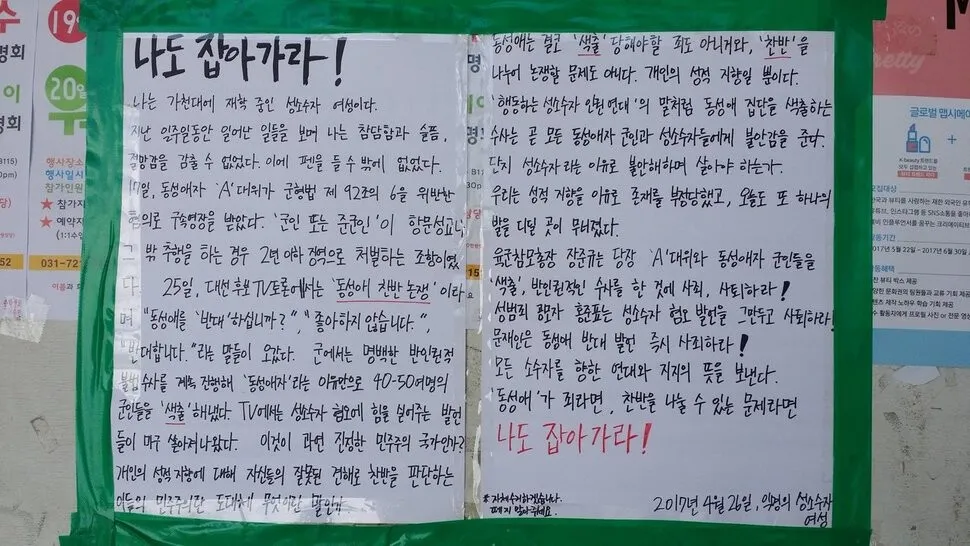 나도 잡아가라!
나는 가천대에 재학 중인 성소수자 여성이다.
지난 일주일동안 일어난 일들을 보며 나는 참담함과 슬픔,
절망감을 감출 수 없었다. 이에 펜을 들 수 밖에 없었다.
17일, 동성애자 'A'대위가 군형법 제 92조의 6을 위반한
혐의로 구속영장을 받았다. '군인 또는 준군인'이 항문성교나
그 밖 추행을 하는 경우 2년 이하 징역으로 처벌하는 조항이었
다. 25일, 대선 후보 TV토론에서는 '동성애 찬반 논쟁'이라
며 "동성애를 '반대'하십니까?", "좋아하지 않습니다.",
"반대합니다."라는 말들이 오갔다. 군에서는 명백한 반인권적
불법 수사를 계속 진행해 '동성애자'라는 이유만으로 40-50여명의
군인들을 '색출'해냈다. TV에서는 성소수자 혐오에 힘을 실어주는 발언
들이 마구 쏟아져나왔다. 이것이 과연 진정한 민주주의 국가인가?
개인의 성적 지향에 대해 자신들의 잘못된 견해로 찬반을 판단하는
이들의 민주주의란 도대체 무엇이란 말인가
동성애는 결코 '색출' 당해야할 죄도 아니거니와, '찬반'을
나누어 논쟁할 문제도 아니다. 개인의 성적 지향일 뿐이다.
'행동하는 성소수자 인권 연대'의 말처럼 동성애 집단을 색출하는
수사는 곧 모든 동성애자 군인과 성소수자들에게 불안감을 준다.
단지 성소수자라는 이유로 불안해하며 살아야 하는가.
우리는 성적 지향을 이유로 존재를 부정당했고, 오늘도 또 하나의
발을 디딜 곳이 무너졌다.
육군참모총장 장준규는 당장 'A'대위와 동성애자 군인들을
'색출', 반인권적인 수사를 한 것에 사죄, 사퇴하라!
성범죄 행자 홍준표는 성소수자 혐오 발언을 그만두고 사죄하라!
문재인은 동성애 반대 발언 즉시 사죄하라!
모든 소수자를 향한 연대와 지지의 뜻을 보낸다.
'동성애'가 죄라면, 찬반을 나눌 수 있는 문제라면
나도 잡아가라!
*자체수거하겠습니다.
떼지 말아주세요.
2017년 4월 26일, 익명의 성소수자
여성
19
명회
이
20일
명회
행사장소
행사일시
참가인원
★ 참가자
★ 예약자
(1:1수
031-72
pretty
글로벌 앱시메이
K-beauty 트렌드를
2017년 5월 22일 ~ 2017년 6월 30일